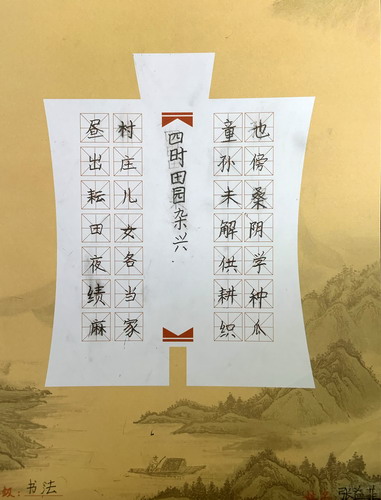 昼出耘田夜绩麻
村庄儿女各当家
四时田园杂兴
童孙未解供耕织
也傍桑阴学种瓜
级：书法